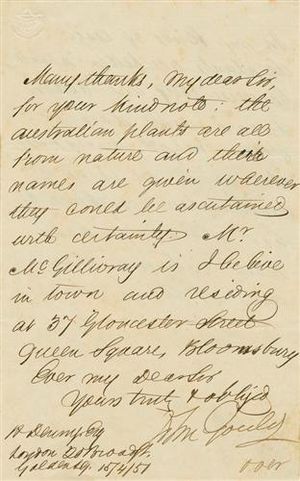 Many thanks, my dear Sir,
for your kind note: the
australian plants are all
from nature and their
names are given wherever
they could be ascertained
with certainty. Mr.
McGillivray is I beleive
in town and residing
at 37 Gloucester Street
Queen Square, Bloomsbury
Ever my dear Sir
Yours truly & oblig'd
John Gould
H Denny Esq
20 Broad St.
Golden Sq. 15/4/51
over